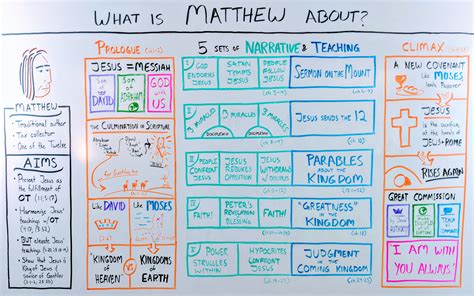 WHAT IS MATTHEW ABOUT?
MATTHEW
- Traditional author
- Tax collector
- One of the Twelve
AIMS
- Present Jesus as
the fulfillment of
OT
- Harmonize Jesus'
teachings w/ OT
- BUT elevate Jesus'
teachings
- Show that Jesus is
King of Jews &
savior of Gentiles
PROLOGUE
JESUS = MESSIAH
Son of DAVID
Son of ABRAHAM
GOD WITH US
THE CULMINATION OF SCRIPTURE
Like DAVID
Like MOSES
KINGDOM OF HEAVEN
VS
KINGDOMS OF EARTH
5 SETS OF NARRATIVE & TEACHING
I
GOD ENDORSES JESUS
SATAN TEMPTS JESUS
PEOPLE FOLLOW JESUS
SERMON ON THE MOUNT
3 MIRACLES
DISCIPLESHIP
3 MIRACLES
DISCIPLESHIP
3 MIRACLES
JESUS SENDS THE 12
PEOPLE CONFRONT JESUS
JESUS REBUKES OPPOSITION
JESUS WITHDRAWS
PARABLES
ABOUT THE
KINGDOM
FAITH!
PETER'S REVELATION BLESSING
FAITH!
"GREATNESS"
IN THE
KINGDOM
POWER STRUGGLES WITHIN
HYPOCRITES CONFRONT JESUS
JUDGMENT
& THE
COMING KINGDOM
CLIMAX
A NEW COVENANT
Like MOSES
JESUS
is the sacrifice
at the hands of
JEWS + ROME
RISES AGAIN
GREAT COMMISSION
I AM WITH
YOU ALWAYS!